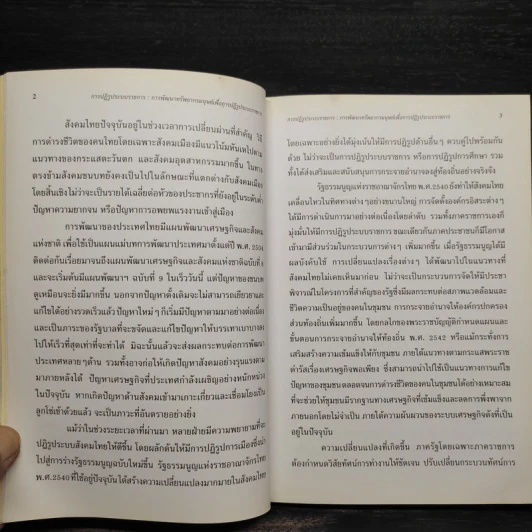 2 การปฏิรูประบบราชการ : การพัฒนาทรัพยากรมนุษย์เพื่อการปฏิรูประบบราชการ
สังคมไทยปัจจุบันอยู่ในช่วงเวลาการเปลี่ยนผ่านที่สำคัญ วิถี
การดำรงชีวิตของคนไทยโดยเฉพาะสังคมเมืองมีแนวโน้มหันเหไปตาม
แนวทางของกระแสตะวันตก และสังคมอุตสาหกรรมมากขึ้น ในทาง
ตรงข้ามสังคมชนบทยังคงเป็นไปในลักษณะที่แตกต่างกับสังคมเมือง
โดยสิ้นเชิงไม่ว่าจะเป็นรายได้เฉลี่ยต่อหัวของประชากรที่ยังอยู่ในระดับต่ำ
ปัญหาความยากจน หรือปัญหาการอพยพแรงงานเข้าสู่เมือง
การพัฒนาของประเทศไทยมีแผนพัฒนาเศรษฐกิจและสังคม
แห่งชาติ เพื่อใช้เป็นแผนแม่บทการพัฒนาประเทศมาตั้งแต่ปี พ.ศ. 2504
ติดต่อกันเรื่อยมาจนถึงแผนพัฒนาเศรษฐกิจและสังคมแห่งชาติฉบับที่ 8
และจะเริ่มต้นมีแผนพัฒนาฯ ฉบับที่ 9 ในเร็ววันนี้ แต่ปัญหาของชนบท
ดูเหมือนจะยิ่งมีมากขึ้น นอกจากปัญหาดั้งเดิมจะไม่สามารถเยียวยาและ
แก้ไขได้อย่างรวดเร็วแล้ว ปัญหาใหม่ ๆ ก็เริ่มมีปัญหาตามมาอย่างต่อเนื่อง
และเป็นภาระของรัฐบาลที่จะขจัดและแก้ไขปัญหาให้บรรเทาเบาบางลง
ไปให้เร็วที่สุดเท่าที่จะทำได้ มิฉะนั้นแล้วจะส่งผลกระทบต่อการพัฒนา
ประเทศหลายๆด้าน รวมทั้งอาจก่อให้เกิดปัญหาสังคมอย่างรุนแรงตาม
มาภายหลังได้ ปัญหาเศรษฐกิจที่ประเทศกำลังเผชิญอย่างหนักหน่วง
ในปัจจุบัน หากเกิดปัญหาด้านสังคมเข้ามาเกาะเกี่ยวและเชื่อมโยงเป็น
ลูกโซ่เข้าด้วยแล้ว จะเป็นภาวะที่อันตรายอย่างยิ่ง
แม้ว่าในช่วงระยะเวลาที่ผ่านมา หลายฝ่ายมีความพยายามที่จะ
ปฏิรูประบบสังคมไทยให้ดีขึ้น โดยผลักดันให้มีการปฏิรูปการเมืองซึ่งนำ
ไปสู่การร่างรัฐธรรมนูญฉบับใหม่ขึ้น รัฐธรรมนูญแห่งราชอาณาจักรไทย
พ.ศ.2540 ที่ใช้อยู่ปัจจุบัน ได้สร้างความเปลี่ยนแปลงมากมายในสังคมไทย
การปฏิรูประบบราชการ : การพัฒนาทรัพยากรมนุษย์เพื่อการปฏิรูประบบราชการ 3
โดยเฉพาะอย่างยิ่งได้มุ่งเน้นให้มีการปฏิรูปด้านอื่นๆ ควบคู่ไปพร้อมกัน
ด้วย ไม่ว่าจะเป็นการปฏิรูประบบราชการ หรือการปฏิรูปการศึกษา รวม
ทั้งได้ส่งเสริมและสนับสนุนการกระจายอำนาจลงสู่ท้องถิ่นอย่างจริงจัง
รัฐธรรมนูญแห่งราชอาณาจักรไทย พ.ศ.2540 ยังทำให้สังคมไทย
เคลื่อนไหวในทิศทางต่างๆ อย่างขนานใหญ่ การจัดตั้งองค์กรอิสระต่างๆ
ได้มีการดำเนินการมาอย่างต่อเนื่องโดยลำดับ รวมทั้งภาคราชการเองก็
มุ่งมั่นให้มีการปฏิรูประบบราชการ ขณะเดียวกันภาคประชาชนก็มีโอกาส
เข้ามามีส่วนร่วมในกระบวนการต่างๆ เพิ่มมากขึ้น เมื่อรัฐธรรมนูญได้มี
ผลบังคับใช้ การเปลี่ยนแปลงเรื่องต่างๆ ได้พัฒนาไปในแนวทางที่
สังคมไทยไม่เคยเห็นมาก่อน ไม่ว่าจะเป็นกระบวนการจัดให้มีประชา
พิจารณ์ในโครงการที่สำคัญของรัฐซึ่งมีผลกระทบต่อสภาพแวดล้อมและ
ชีวิตความเป็นอยู่ของคนในชุมชน การกระจายอำนาจให้องค์กรปกครอง
ส่วนท้องถิ่นเพิ่มมากขึ้น โดยกลไกของพระราชบัญญัติกำหนดแผนและ
ขั้นตอนการกระจายอำนาจให้ท้องถิ่น พ.ศ. 2542 หรือแม้กระทั่งการ
เสริมสร้างความเข้มแข็งให้กับชุมชน ภายใต้แนวทางตามกระแสพระราช
ดำรัสเรื่องเศรษฐกิจพอเพียง ซึ่งสามารถนำไปใช้เป็นแนวทางการแก้ไข
ปัญหาของชุมชนตลอดจนการดำรงชีวิตของคนในชุมชนได้อย่างเหมาะสม
ที่จะช่วยให้ชุมชนมีรากฐานทางเศรษฐกิจที่เข้มแข็งและลดการพึ่งพาจาก
ภายนอกโดยไม่จำเป็น ภายใต้ความผันผวนของระบบเศรษฐกิจดังที่เป็น
อยู่ในปัจจุบัน
ความเปลี่ยนแปลงที่เกิดขึ้น ภาครัฐโดยเฉพาะภาคราชการ
ต้องกำหนดวิสัยทัศน์การทำงานให้ชัดเจน ปรับเปลี่ยนกระบวนทัศน์การ